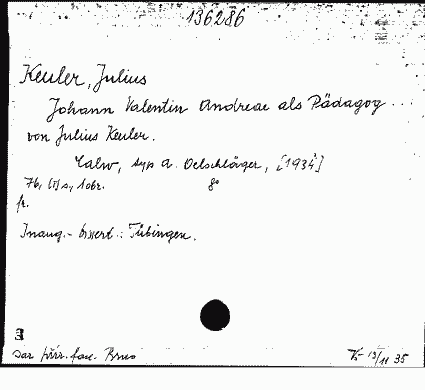 136286
Keuler, Julius
Johann Valentin Andreae als Pädagog ...
von Julius Keuler.
Calw, typ A. Oelschläger, [1934]
76, [1] s, 1 obr. 8°
fr.
Inaug. - Dissert. : Tübingen.
3
Dar přír. fac. Brno 13/11 35